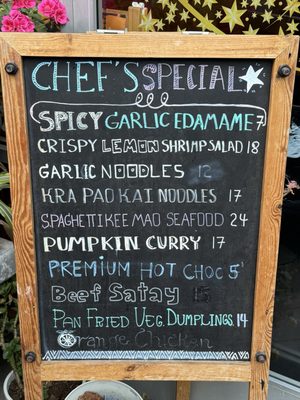 CHEF'S SPECIAL
SPICY GARLIC EDAMAME 7
CRISPY LEMON SHRIMP SALAD 18
GARLIC NOODLES 12
KRA PAO KAI NOODLES 17
SPAGHETTI KEE MAO SEAFOOD 24
PUMPKIN CURRY 17
PREMIUM HOT CHOC 5
Beef Satay 15
PAN FRIED VEG. DUMPLINGS. 14
Orange Chicken